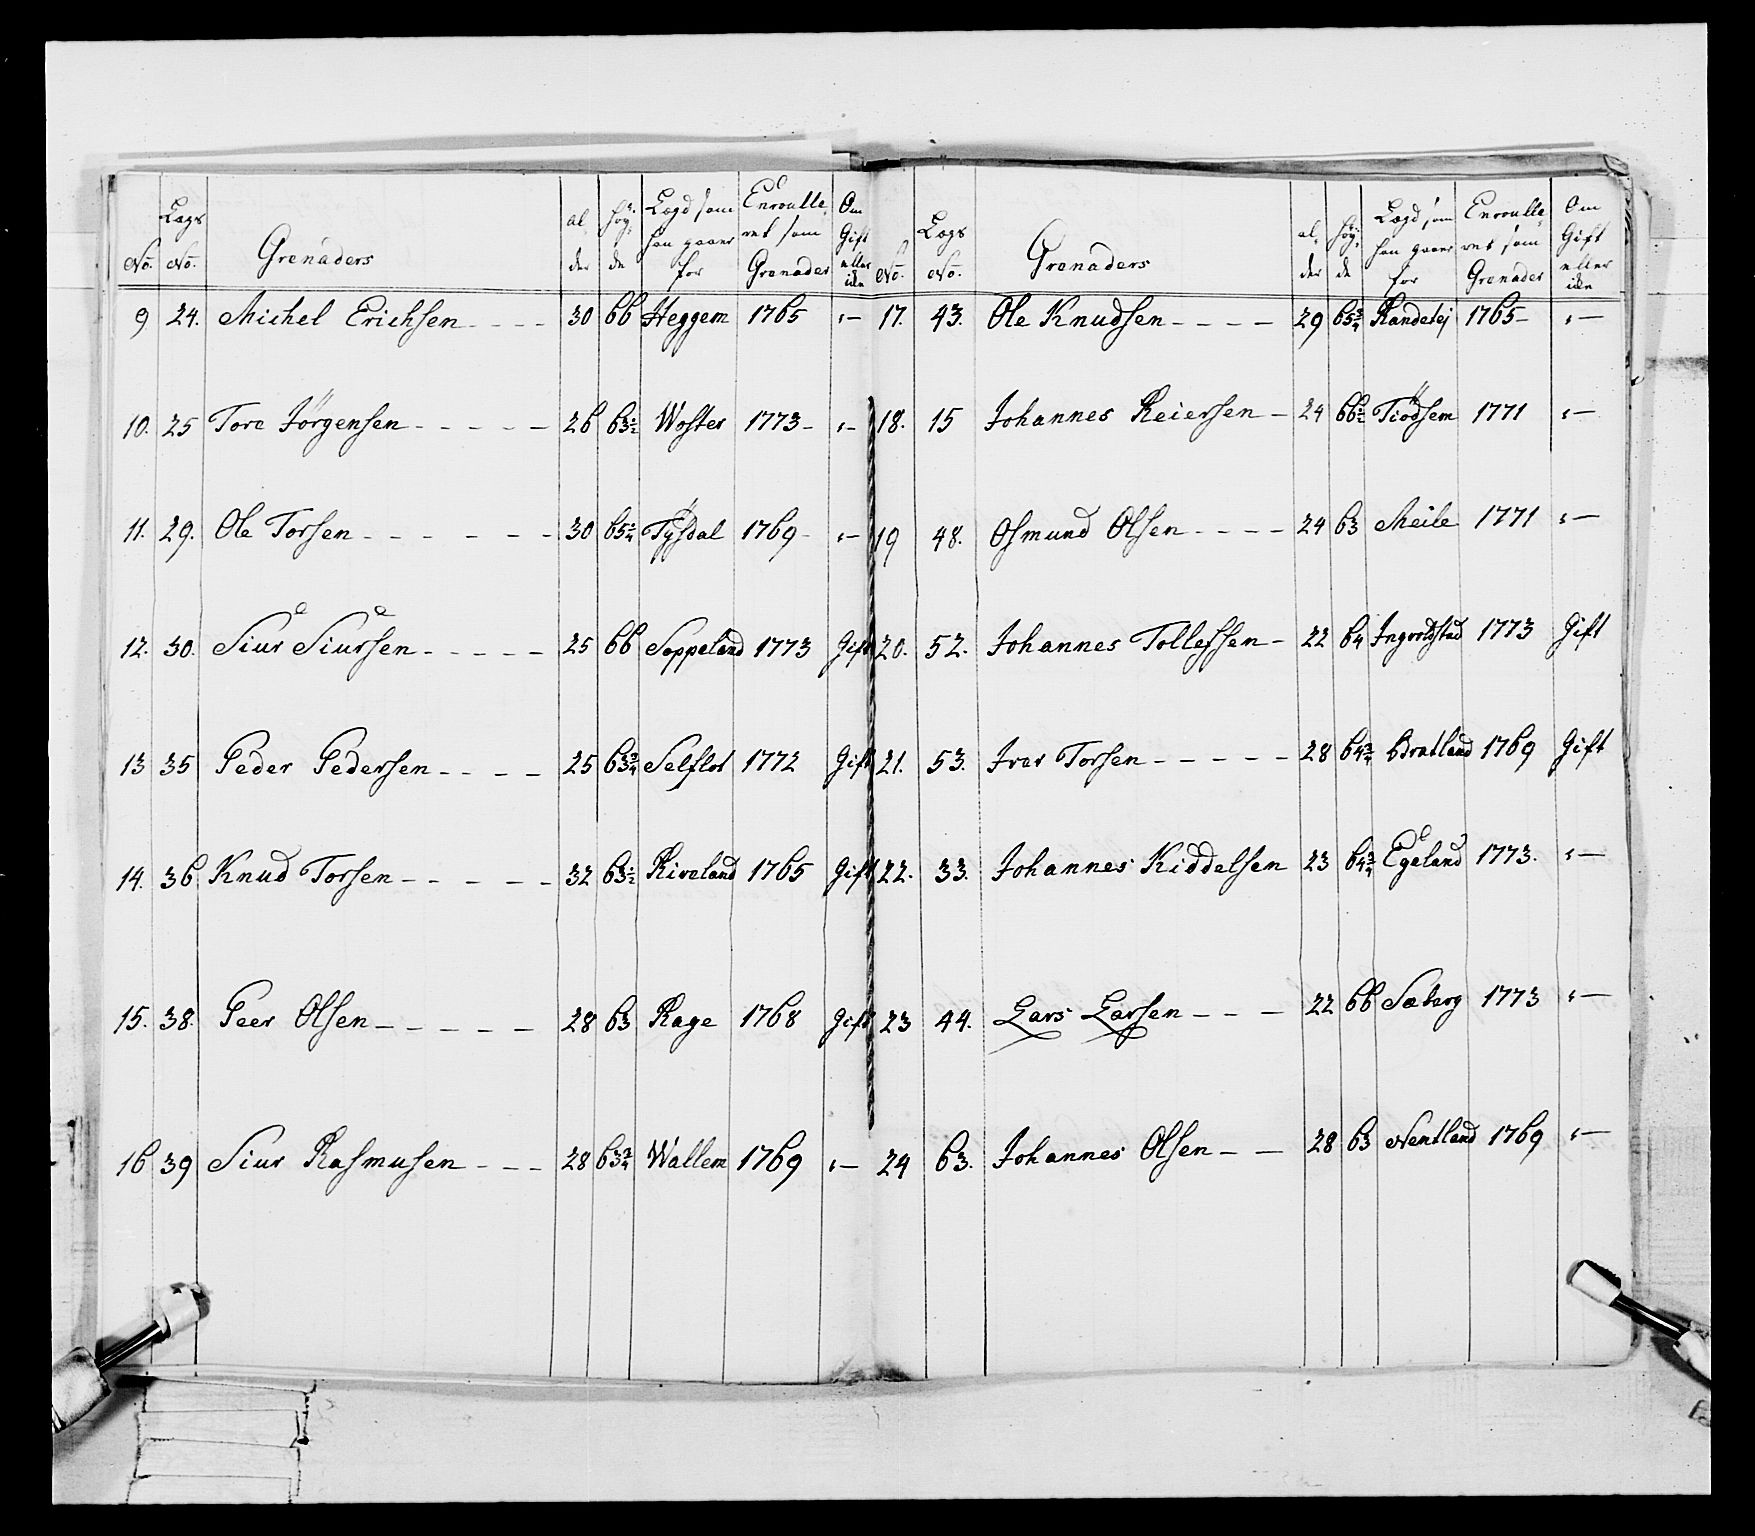 No. Lags No. Grenaders al der höy de Lægd som han gaaer for Enroulle ret som Grenader Om Gift eller ikke
9 24. Michel Erichsen - - - - 30 66 Heggem 1765 „ —
10. 25 Tore Jörgensen - - - - - 26 63½ Woster 1773 - „ —
11. 29. Ole Torsen - - - - - - 30 Tysdal 1769 - „ —
12. 30. Siur Siursen - - - - - 25 66 Soppeland 1773 Gift
13 35 Peder Pedersen - - - - 25 63¾ Selflot 1772 Gift
14. 36 Knud Torsen - - - - - - 32 63½ Riveland 1765 Gift
15. 38. Peer Olsen - - - - - - 28 63 Rage 1768 Gift
16 39 Siur Rasmusen - - - 28 63¾ Wallem 1769 „ —
No. Lags No. Grenaders al der höy de Lægd som han gaaer for Enroulle ret som Grenader Om Gift eller ikke
17. 43. Ole Knudsen - - - - 29 65¾ Randetej 1765 - „ —
18. 15 Johannes Reiersen - 24 66½ Tiödsem 1771 „ —
19 48. Osmund Olsen - - - - 24 63 Meile 1771 „ —
20. 52. Johannes Tollefsen - 22 64 1773 Gift
21. 53. Iver Torsen - - - - - 28 64¾ Bratland 1769 Gift
22. 33. Johannes Kiddelsen 23 64¾ Egeland 1773. „ —
23 44. Lars Larsen - - - 22 66 Søeberg 1773 „ —
24 63. Johannes Olsen - - 28 63 Nentland 1769 „ —